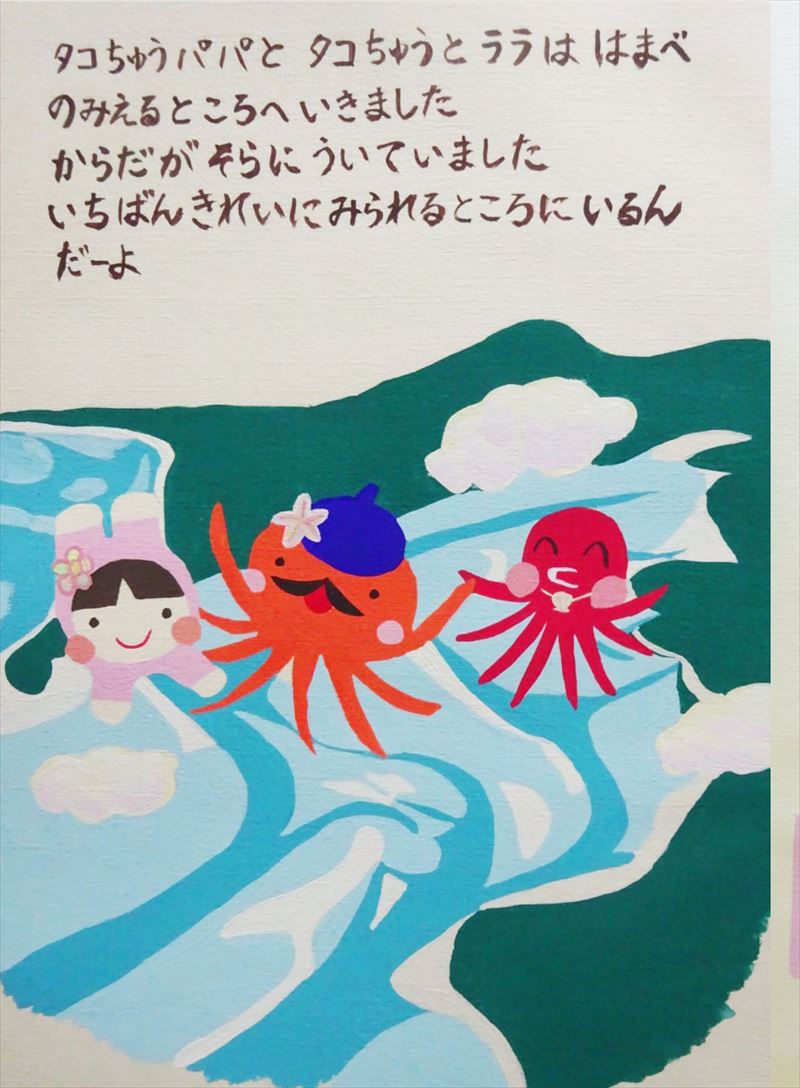 タコちゅうパパと タコちゅうとララは はまべ
のみえるところへいきました
からだが そらに ういていました
いちばんきれいにみられるところに いるん
だーよ